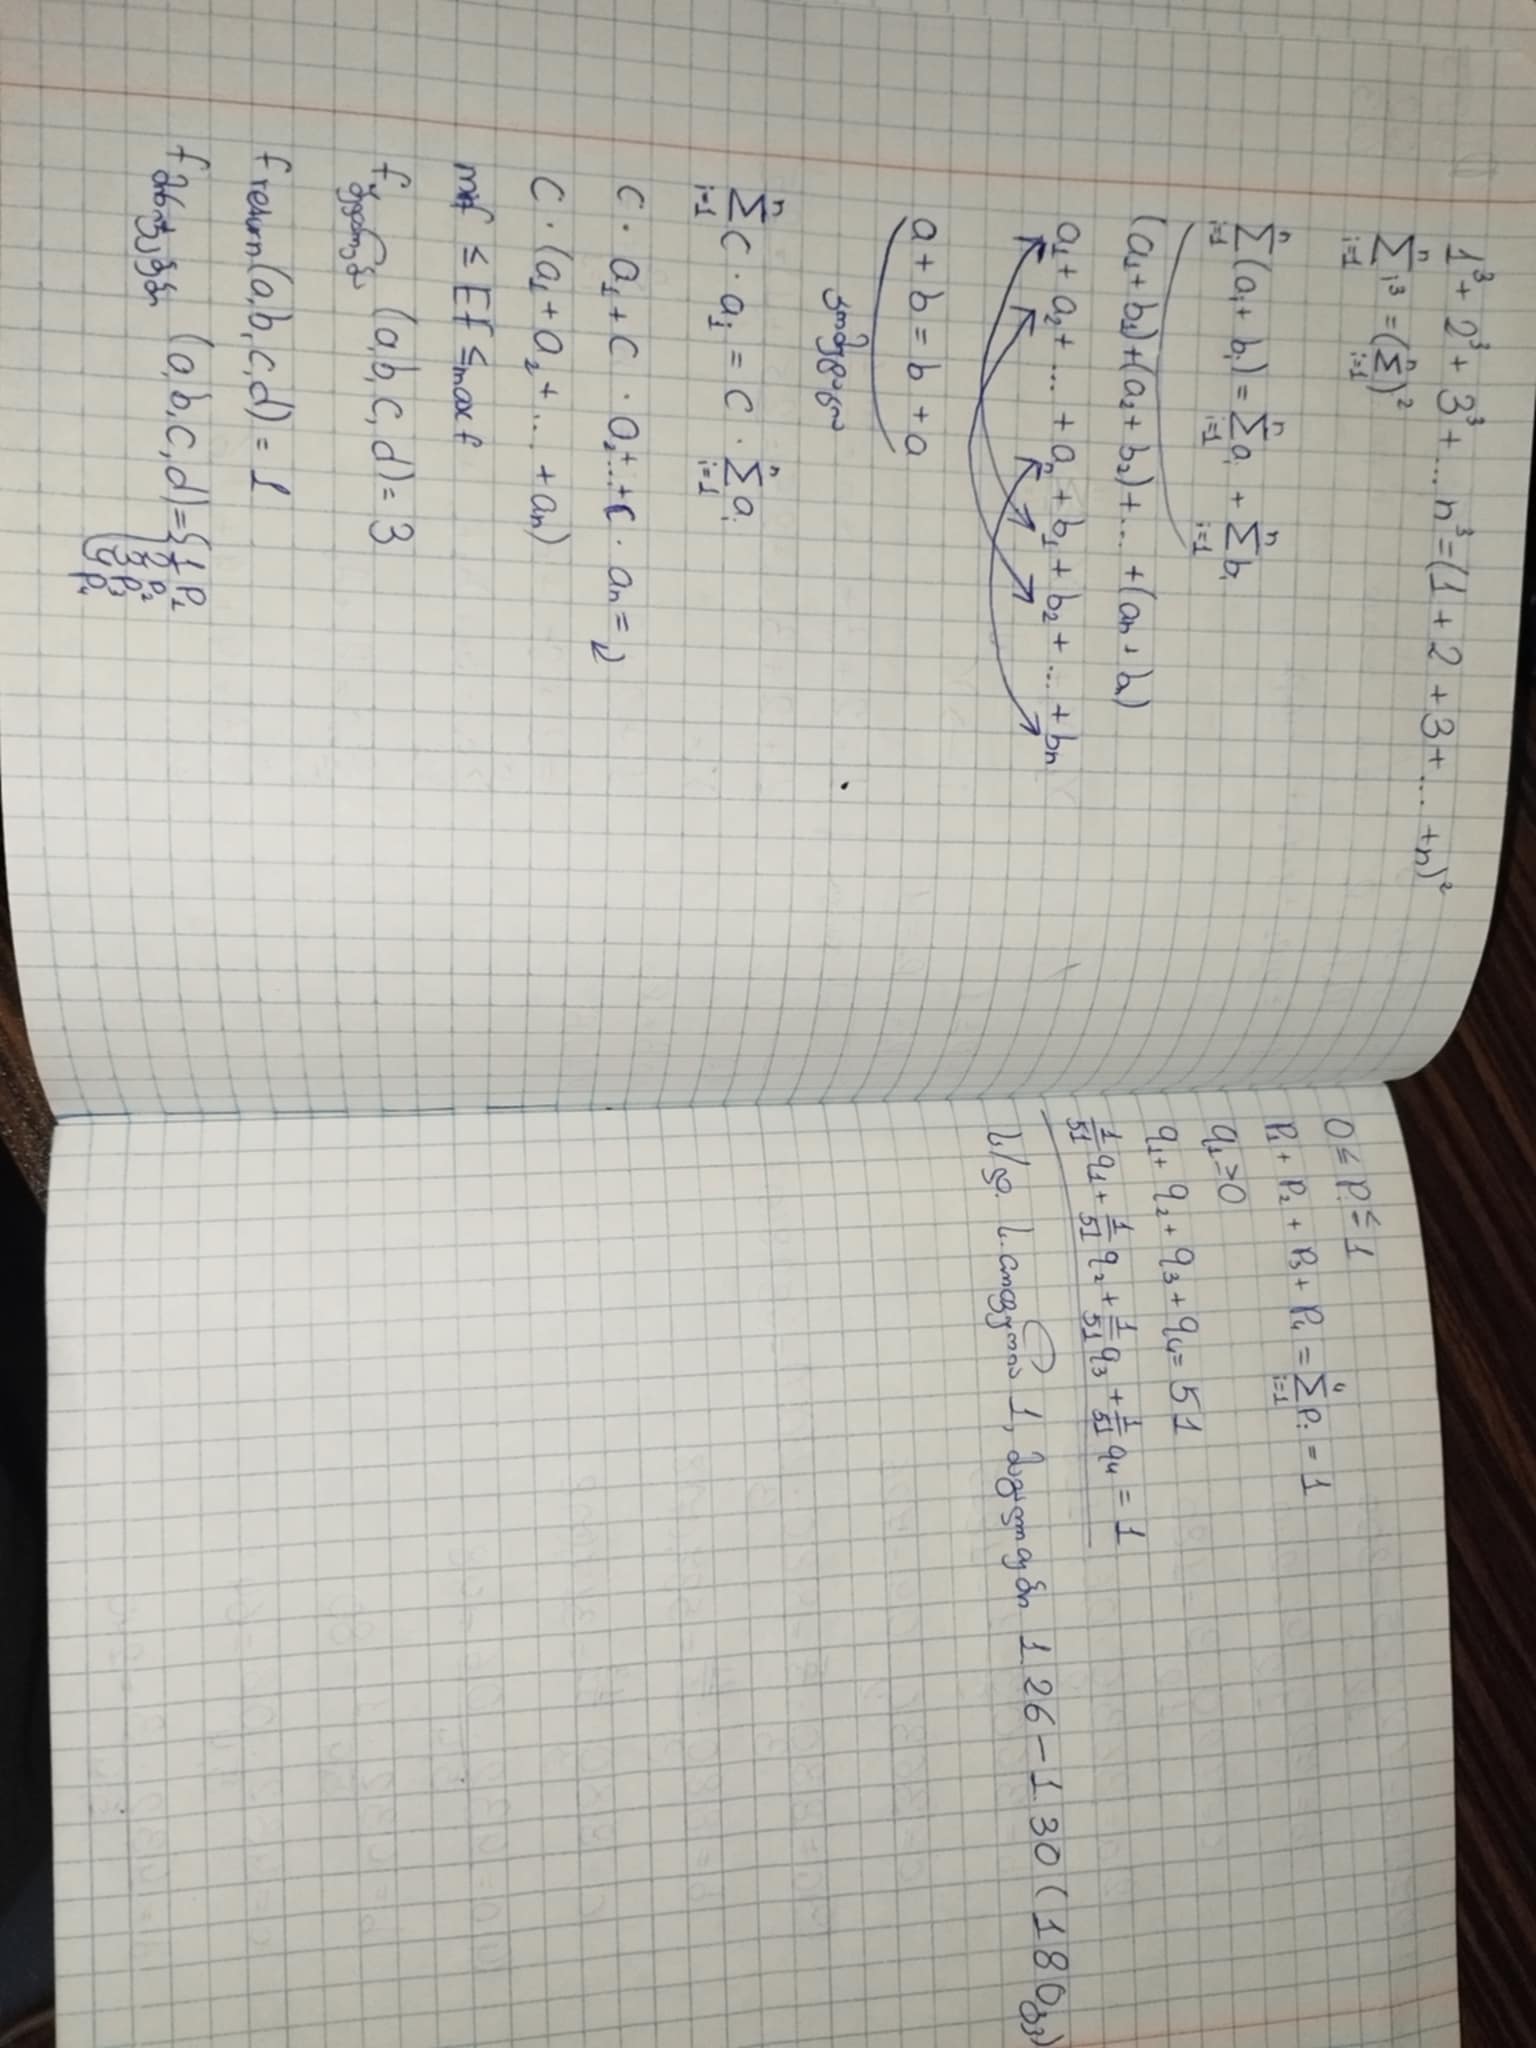 1³ + 2³ + 3³ + ... n³ = (1 + 2 + 3 + ... + n)²
∑ⁿᵢ₌₁ i³ = (∑ⁿᵢ₌₁)²
∑ⁿᵢ₌₁ (aᵢ + bᵢ) = ∑ⁿᵢ₌₁ aᵢ + ∑ⁿᵢ₌₁ bᵢ
(a₁ + b₁) + (a₂ + b₂) + ... + (aₙ + bₙ)
a₁ + a₂ + ... + aₙ + b₁ + b₂ + ... + bₙ
a + b = b + a
∑ⁿᵢ₌₁ C · aᵢ = C · ∑ⁿᵢ₌₁ aᵢ
C · a₁ + C · a₂ + ... + C · aₙ =
C · (a₁ + a₂ + ... + aₙ)
min f ≤ Ef ≤ max f
f (a, b, c, d) = 3
f return (a, b, c, d) = 1
f (a, b, c, d) = { 1 p₁
2 p₂
3 p₃
4 p₄
0 ≤ pᵢ ≤ 1
p₁ + p₂ + p₃ + p₄ = ∑⁴ᵢ₌₁ pᵢ = 1
q₁ ≥ 0
q₁ + q₂ + q₃ + q₄ = 51
1/51 q₁ + 1/51 q₂ + 1/51 q₃ + 1/51 q₄ = 1
ს/დ. 1, 126 – 130 (180გვ)